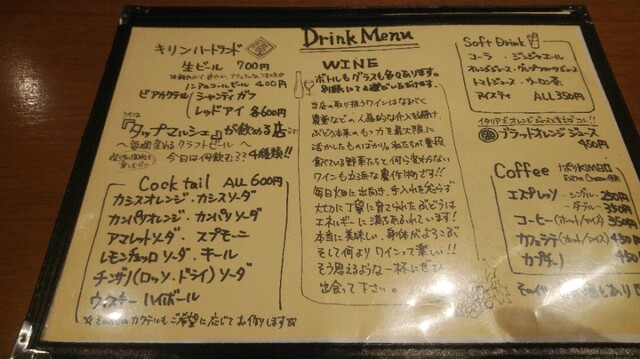 Drink Menu
キリンハートランド
生ビール 700円
ノンアルコールビール 400円
ビアカクテル シャンディガフ
レッドアイ 各600円
『タップマルシェ』が飲める店です
～毎週変わるクラフトビール～
今日は何飲む??4種類!!
Cocktail ALL600円
カシスオレンジ・カシスソーダ
カンパリオレンジ・カンパリソーダ
アマレットソーダ・スプモーニ
レモンチェッロソーダ・キール
チンザノ(ロッソ・ドライ)ソーダ
ウィスキーハイボール
※その他のカクテルもご希望に応じてお作りします※
WINE
ボトルもグラスも多々あります。
当店の取り扱うワインはなるべく
農薬などの人為的な介入を避け、
ぶどう本来のもつ力を最大限に
活かしたものばかり。私たちが普段
食べている野菜たちと何ら変わらない
ワインも立派な農作物です!!
毎日畑に出向き、手入れを怠らず
大切に丁寧に育てられたぶどうは
エネルギーに満ちあふれています!
本当に美味しい、身体がよろこぶ
そして何よりワインって楽しい!!
そう思えるような一杯にぜひ
出会って下さい。
Soft Drink
コーラ・ジンジャエール
オレンジジュース・グレープフルーツジュース
トマトジュース・ウーロン茶
アイスティ ALL350円
イタリア産オレンジジュースといえばコレ!!
ブラッドオレンジジュース
450円
Coffee ナポリKIMBO
エスプレッソ -シングル- 250円
-ダブル- 350円
コーヒー(ホット/アイス) 350円
カフェラテ(ホット/アイス) 450円
カプチーノ 450